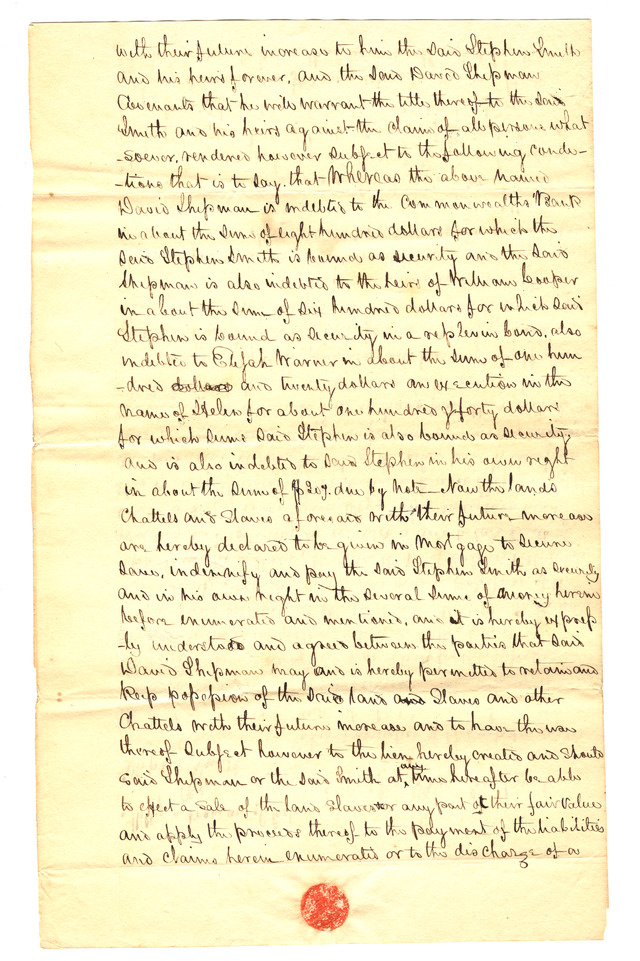 with their future increase to him the said Stephen Smith
and his heirs forever, and the said David Shipman
Covenants that he will warrant the title thereof to the said
Smith and his heirs against the claim of all persons what
-soever, rendered however subject to the following condi-
-tions that is to say, that Whereas the above named
David Shipman is indebted to the Commonwealths Bank
in about the sum of eight hundred dollars for which the
said Stephen Smith is bound as security and the said
Shipman is also indebted to the heirs of William Cooper
in about the sum of six hundred dollars for which said
Stephen is bound as security in a replevin bond, also
indebted to Elijah Warner in about the sum of one hun
-dred dollars and twenty dollars an execution in the
name of Helen for about one hundred & forty dollars
for which sums said Stephen is also bound as security,
and is also indebted to said Stephen in his own right
in about the sum of $207. due by note - Now the lands
Chattels and Slaves aforesaid with their future increase
are hereby declared to be given in Mortgage to secure
save, indemnify and pay the said Stephen Smith as security
and in his own right in the several sums of money herein
before enumerated and mentioned, and it is hereby express
-ly understood and agreed between the parties that said
David Shipman may and is hereby permitted to retain and
keep possession of the said land and Slaves and other
Chattels with their future increase and to have the use
thereof subject however to the lien hereby created and should
said Shipman or the said Smith at any time hereafter be able
to effect a sale of the land slaves or any part at their fair value
and apply the proceeds thereof to the payment of the liabilities
and claims herein enumerated or to the discharge of a